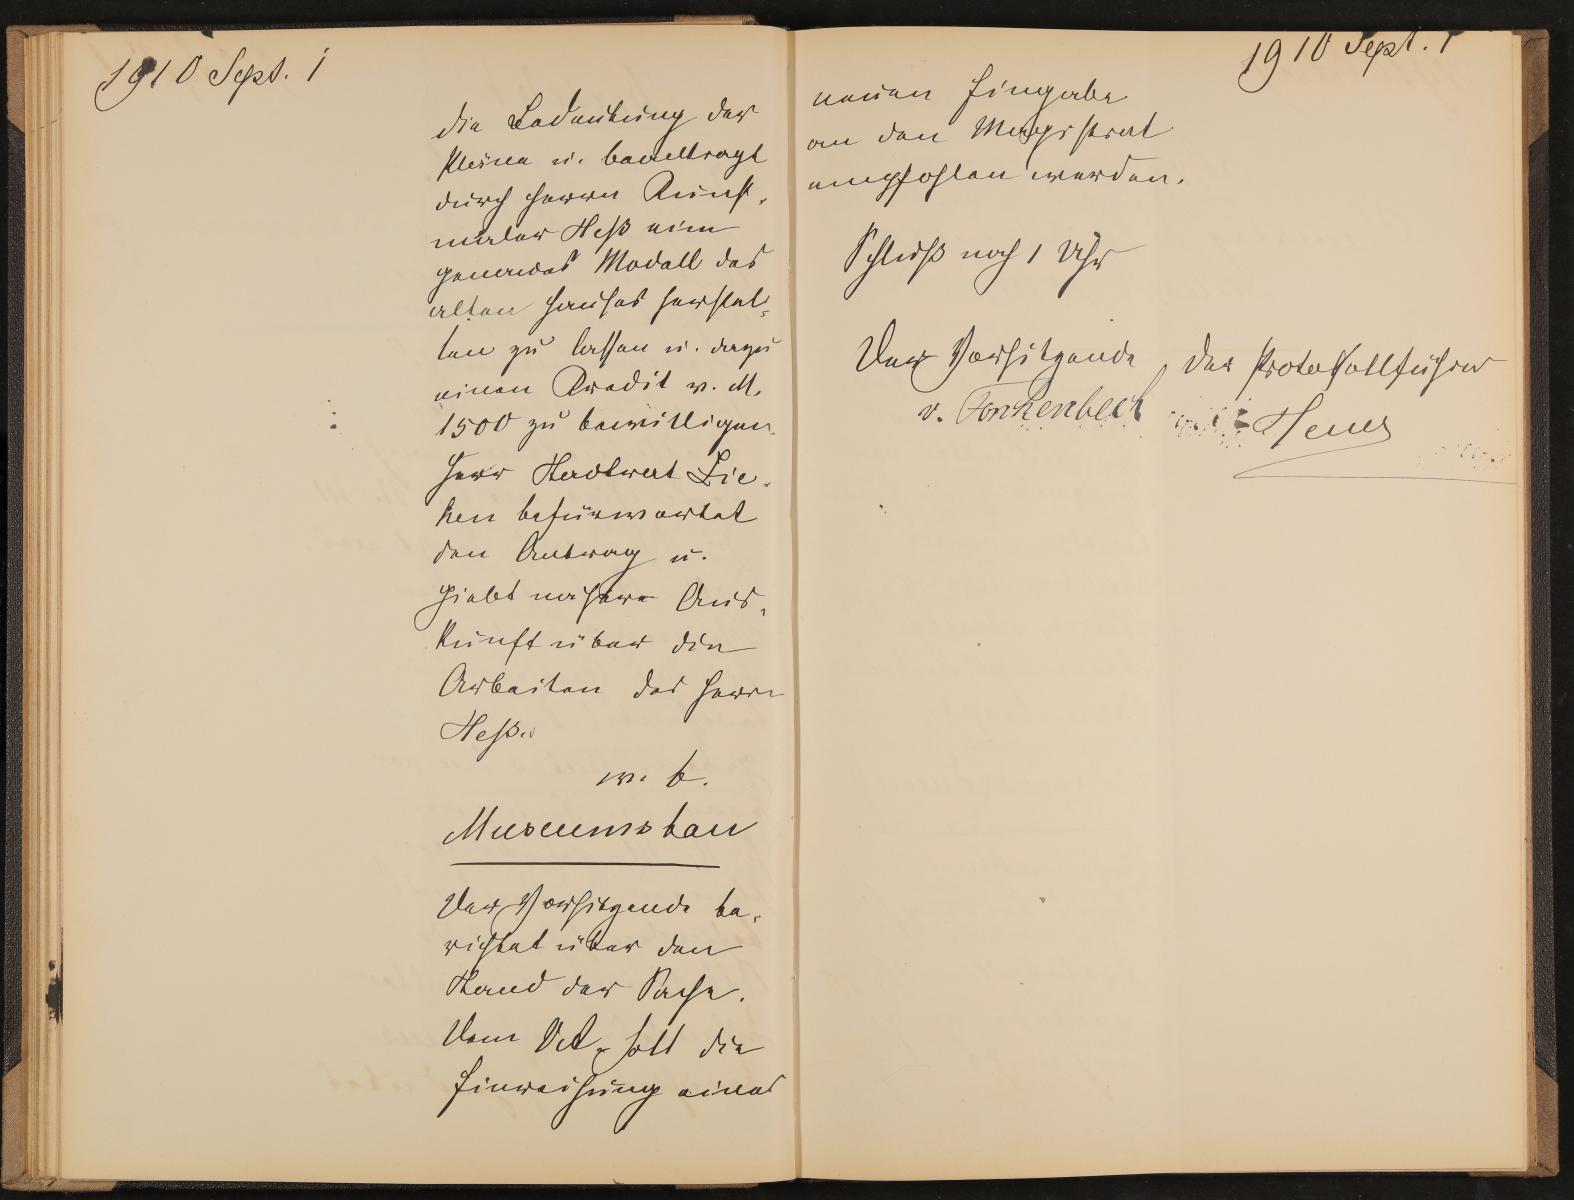 1910 Sept. 1
die Bedeutung der
Pläne u. beauftragt
durch Herrn Kunst-
maler Heß ein
genaues Modell des
alten Hauses herstel-
len zu lassen u. dazu
einen Kredit v. M.
1500 zu bewilligen.
Herr Stadtrat Lie-
ken befürwortet
den Antrag u.
giebt nähere Aus-
kunft über die
Arbeiten des Herrn
Heß.
w. b.
Museumsbau
Der Vorsitzende be-
richtet über den
Stand der Sache.
Dem soll die
Einreichung einer
1910 Sept. 1
neuen Eingabe
an den Magistrat
empfohlen werden.
Schluß nach 1 Uhr
Der Vorsitzende
v. Forckenbeck
Der Protokollführer